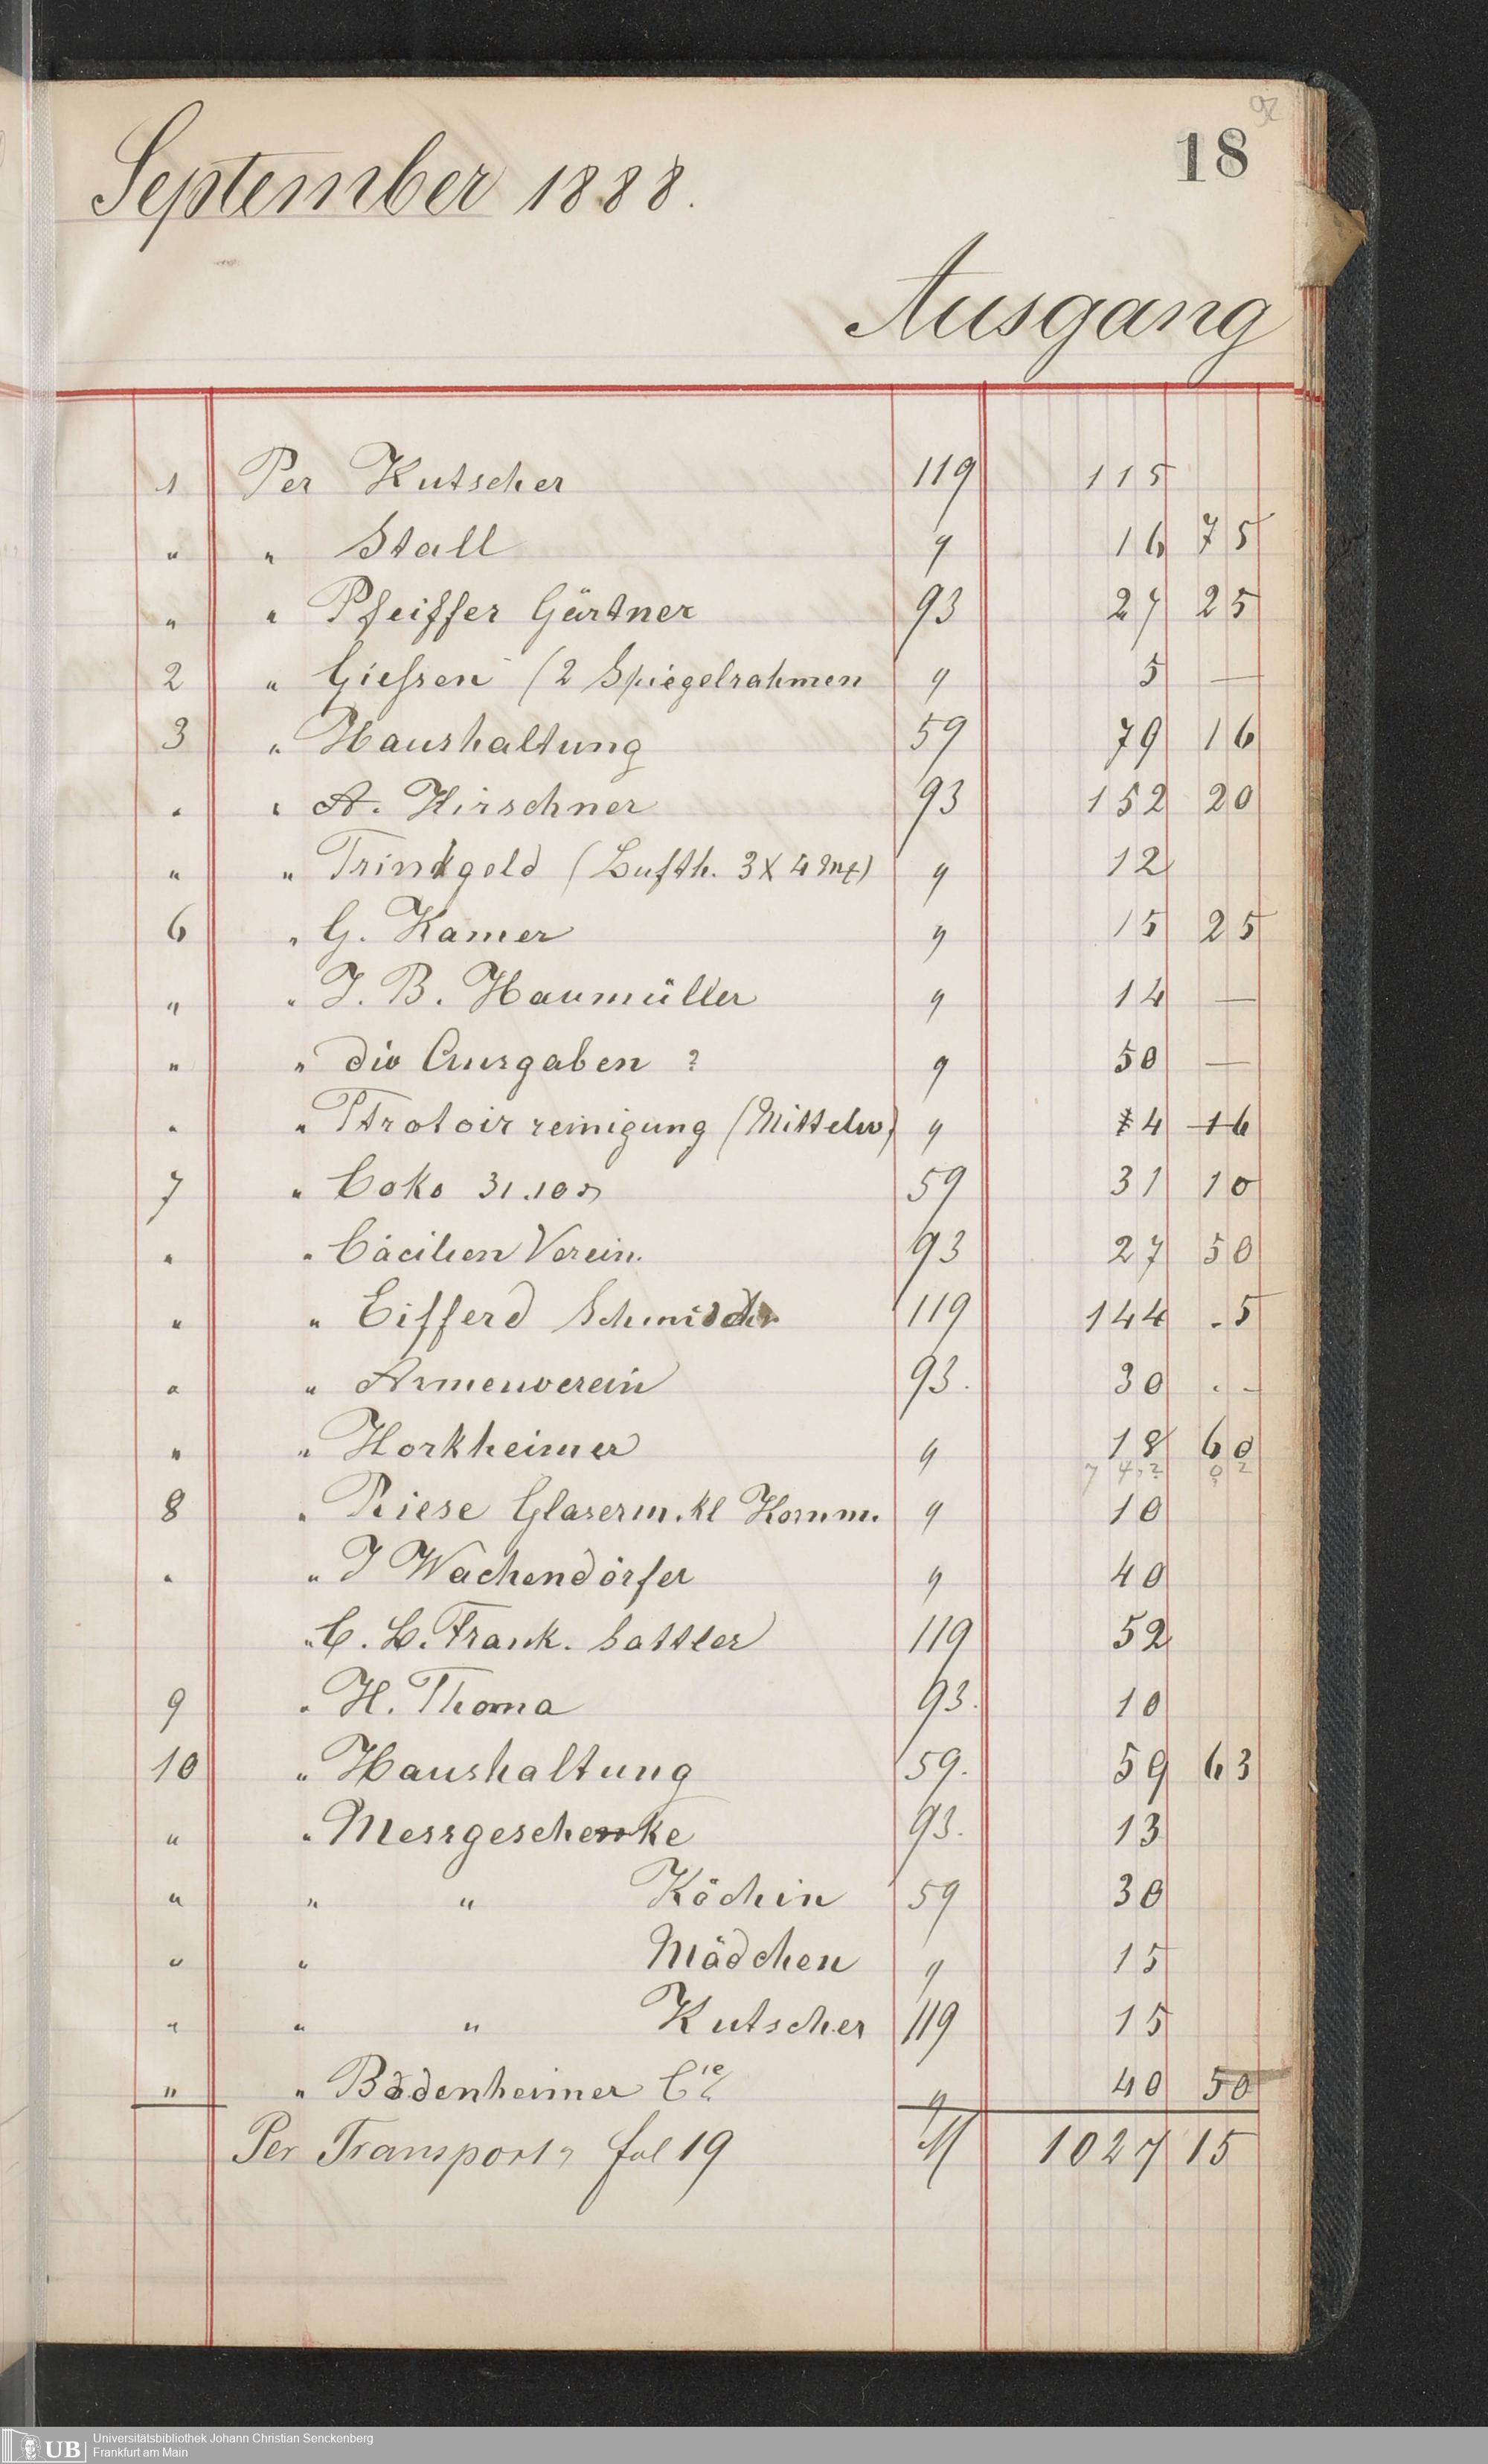 26
18
September 1888.
Ausgang
1 Per Kutscher 119 115
" " Stall " 16 75
" " Pfeiffer Gärtner 93 27 25
2 " Giessen (2 Spiegelrahmen " 5 —
3 " Haushaltung 59 79 16
" " A. Hirschner 93 152 20
" " Trinkgeld (Lufth. 3 X 4 Mk) " 12
6 " G. Kamer " 15 25
" " J. B. Haumüller " 14 —
" " div Ausgaben ? " 50 —
" " Trotoir reinigung (Mittelw) " 4 16
7 " Coks 31.10 59 31 10
" " Cäcilien Verein. 93 27 50
" " Eifferd 119 144 . 5
" " Armenverein 93. 30 . -
" " Horkheimer " 18 60
8 " Riese Glaserm. kl Komm. " 10
" " J Wachendörfer " 40
" C. L. Frank. Sattler 119 52
9 " H. Thoma 93. 10
10 " Haushaltung 59. 59 63
" " Messgeschenke 93. 13
" " " Köchin 59 30
" " Mädchen " 15
" " " Kutscher 119 15
" " Bodenheimer Cie " 40 50
Per Transport fol 19 M 1027 15
UB Universitätsbibliothek Johann Christian Senckenberg
Frankfurt am Main